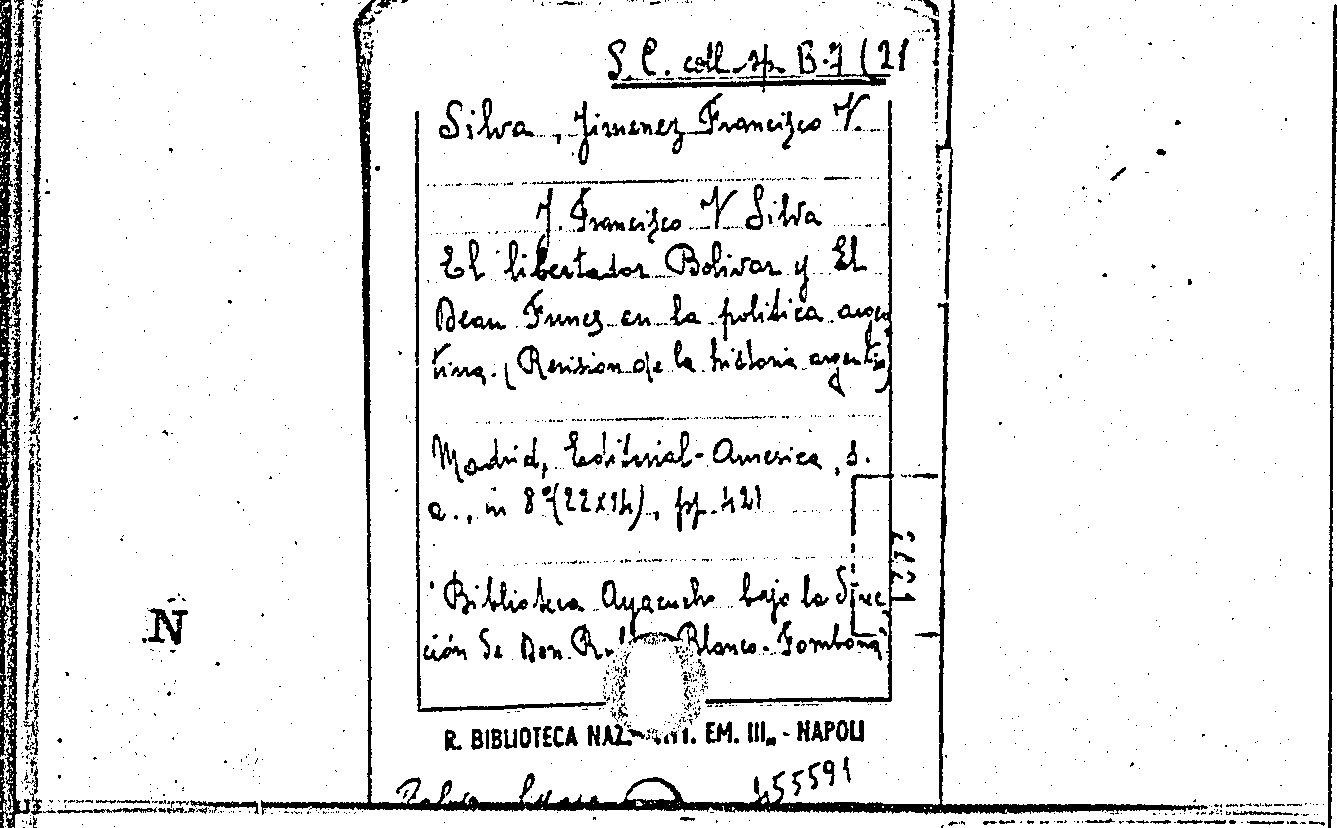 S.C. coll. sp. B.7 (21
Silva, Jimenez Francisco V.
J. Francisco V Silva
El libertador Bolivar y El
Dean Funes en la politica argen
tina. (Revision de la historia argentina)
Madrid, Editorial-America, s.
a., in 8° (22x14), pp. 421
"Biblioteca Ayacucho bajo la direc
ción de Don R. Blanco-Fombona"
R. BIBLIOTECA NAZ. EM. III„ - NAPOLI
455591
N